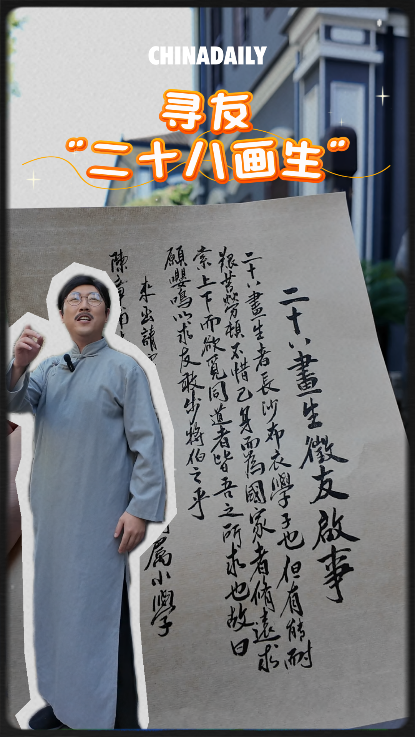 CHINADAILY
寻友
“二十八画生”
二十八畫生徵友啟事
二十八畫生者長沙布衣學子也但有能耐
艱苦勞頓不惜己身而為國家者脩遠求
索上下而欲覓同道者皆吾之所求也故曰
願嚶鳴以求友敢步將伯之乎
來函請
属小學
陳章甫